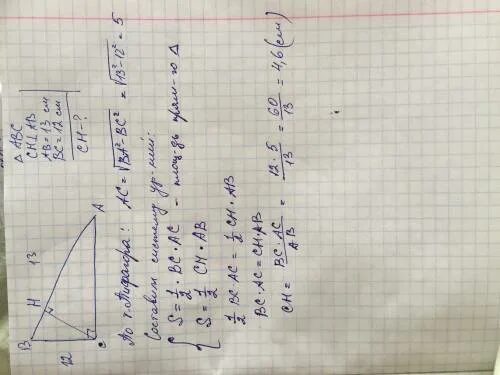 △ ABC
CH ⊥ AB
AB = 13 см
BC = 12 см
CH - ?
B
H
13
12
C
A
По т. Пифагора: AC = √(BA² - BC²) = √(13² - 12²) = 5
Составим систему ур-ний:
{ S = 1/2 · BC · AC - площадь прям-го △
S = 1/2 CH · AB
1/2 BC · AC = 1/2 CH · AB
BC · AC = CH · AB
CH = BC · AC / AB = 12 · 5 / 13 = 60 / 13 = 4,6 (см)